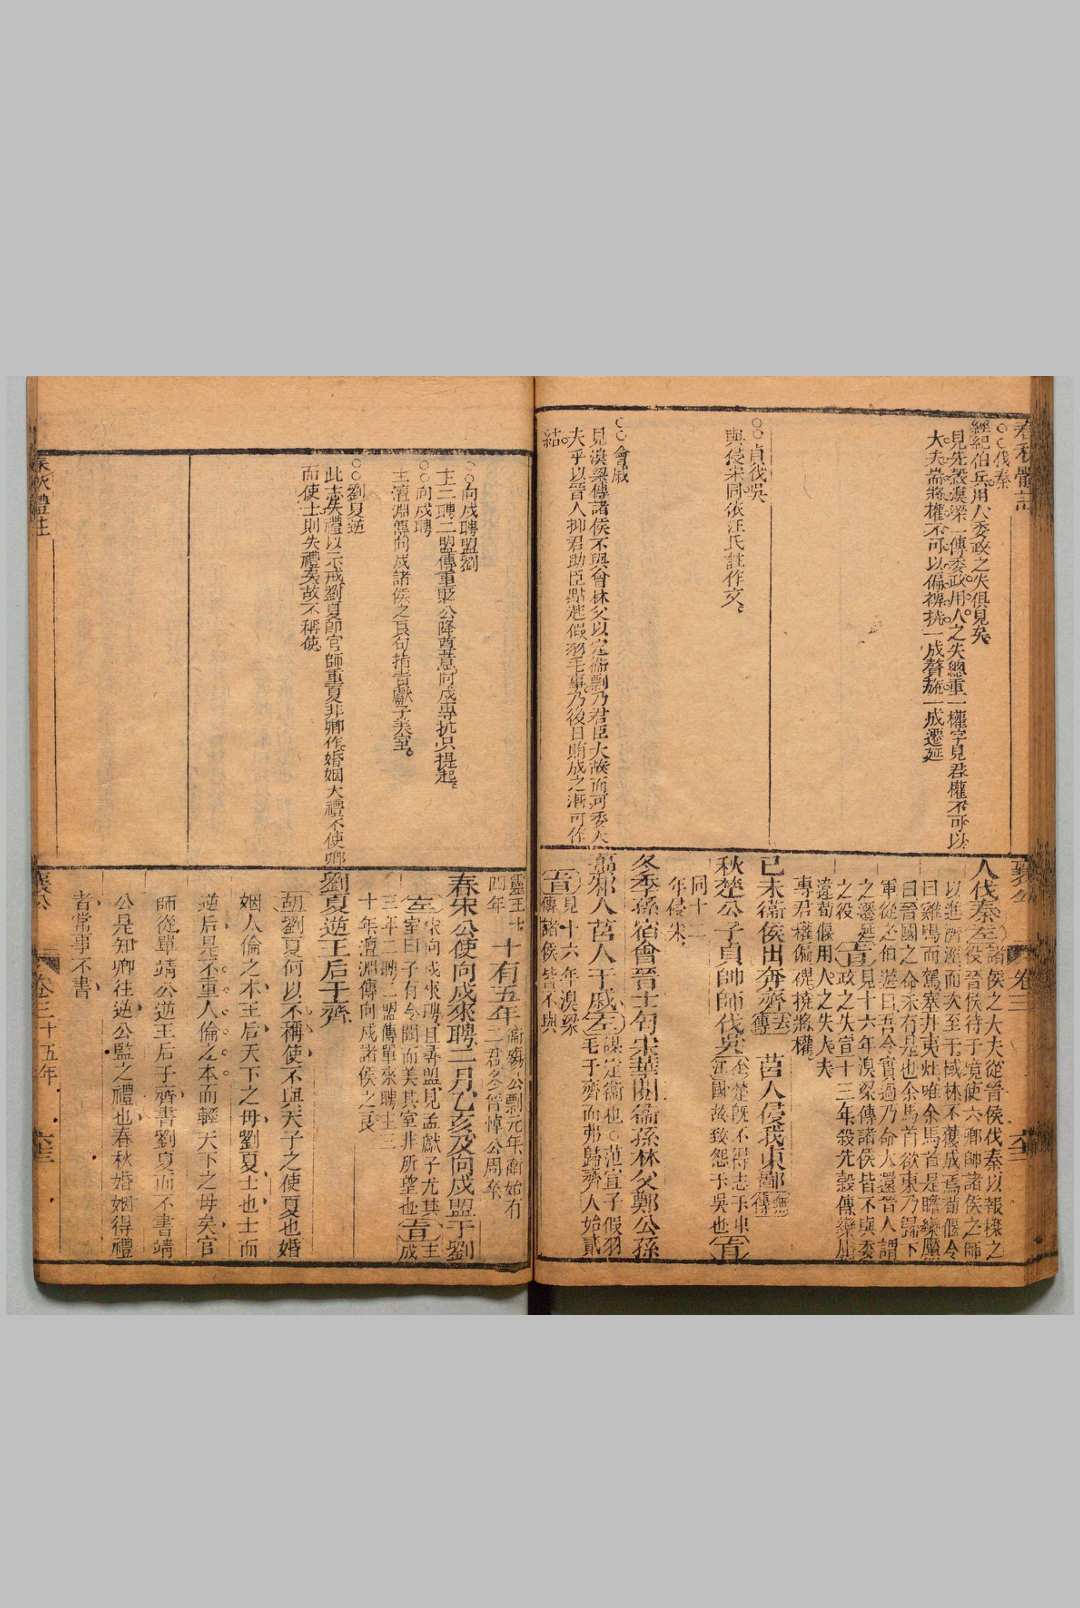 ○○伐秦
經紀伯兵用人委政之失俱見矣
見先穀溴梁二傳委政用人之失總重一權字見君權不可以
大夫耑將權不可以偏裨撓一成聲
一成遷延
○○貞伐吳
與侵宋同依汪氏註作交
○○會戚
見溴梁傳諸侯不與會林父以定衛剽乃君臣大故而可委大
夫乎以晉人抑君助臣
假羽毛事乃後日賄成之漸可作
結
人伐秦 左 諸侯之大夫從晉侯伐秦以報櫟之
役晉侯待于境使六卿帥諸侯之師
以進濟涇而次至于棫林不獲成焉荀偃令
曰雞鳴而駕塞井夷灶唯余馬首是瞻欒黶
曰晉國之命未有是也余馬首欲東乃歸下
軍從之伯游曰吾令實過乃命大還晉人謂
之遷延之役 旨 見十六年溴梁傳諸侯皆不與委
政之失宣十三年殺先穀傳欒黶
違荀偃用人之失大夫
專君權偏裨撓將權
己未衛侯出奔齊 無傳 莒人侵我東鄙 無傳
秋楚公子貞帥師伐吳 左 楚既不得志于中國故致怨于吳也 旨
同十二
年侵宋
冬季孫宿會晉士匄宋華閱衛孫林父鄭公孫
蠆邾人莒人于戚 左 謀定衛也○范宣子假羽
毛于齊而弗歸齊人始貳
旨 見十六年溴梁
傳諸侯皆不與
○○向戌聘盟劉
主三聘二盟傳重聖公降尊意向戌專抗只提起
○○向戌聘
主澶淵傳向戌諸侯之良句指責獻子美室
○○劉夏逆
此志失禮以示戒劉夏即官師重夏非卿作婚姻大禮不使卿
而使士則失禮矣故不稱使
靈王十四年 十有五年 衛殤公剽元年衛始有二君冬晉悼公周卒
春宋公使向戌來聘二月己亥及向戌盟于劉
左 宋向戌來聘且尋盟見孟獻子尤其
室曰子有令聞而美其室非所望也 旨 主成
三年二聘二盟傳單來聘主三
十年澶淵傳向戌諸侯之良
劉夏逆王后于齊
胡 劉夏何以不稱使不與天子之使夏也婚
姻人倫之本王后天下之母劉夏士也士而
逆后是不重人倫之本而輕天下之母矣官
師從單靖公逆王后于齊書劉夏而不書靖
公是知卿往逆公監之禮也春秋婚姻得禮
者常事不書
春秋體註
襄公
卷三 十五年
六三